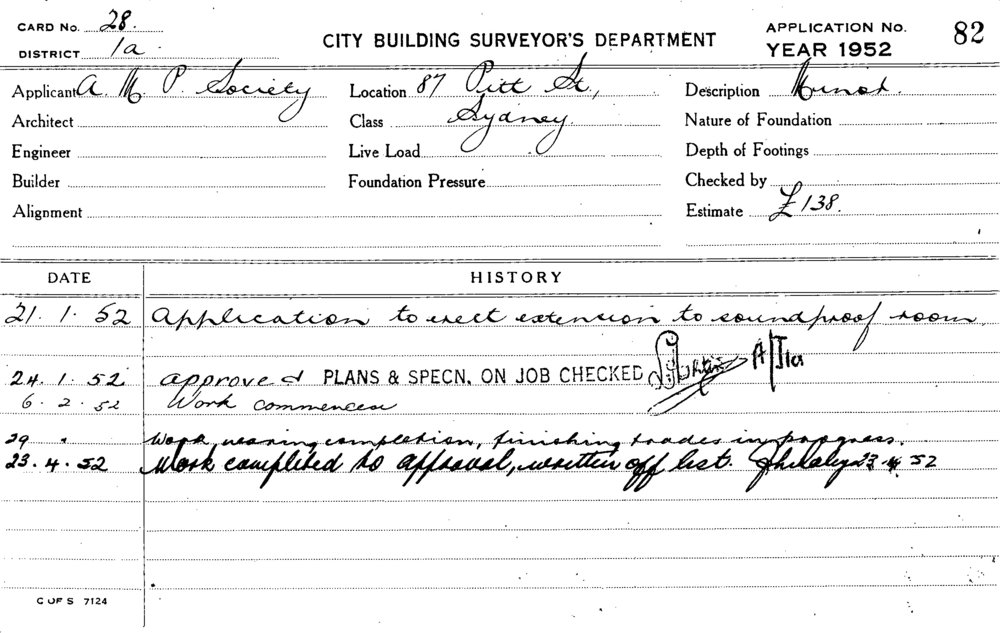 CARD No. 28.
DISTRICT 1a.
CITY BUILDING SURVEYOR'S DEPARTMENT
APPLICATION No. 82
YEAR 1952
Applicant A. M. P. Society Location 87 Pitt St., Description
Architect Class Sydney Nature of Foundation
Engineer Live Load Depth of Footings
Builder Foundation Pressure Checked by
Alignment Estimate £138.
DATE HISTORY
21. 1. 52 Application to erect extension to soundproof room.
24. 1. 52 approved PLANS & SPECN. ON JOB CHECKED
6. 2. 52 Work commenced
29 " Work nearing completion, finishing trades in progress.
23. 4. 52 Work completed to approval, written off list. 23 4 52
C OF S 7124